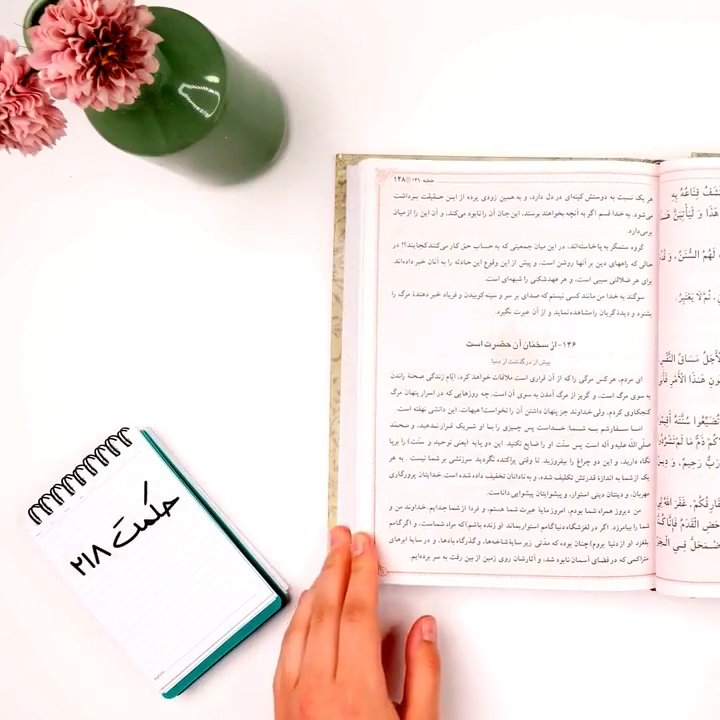 خطبه ۱۴۶ ۱۴۸
هر یک نسبت به دوستش کینه‌ای در دل دارد، و به همین زودی پرده از این حقیقت برداشت
می‌شود. به خدا قسم اگر به آنچه بخواهند برسند، این جان آن را نابود می‌کند، و آن این را از میان
برمی‌دارد.
گروه ستمگر به پا خاسته‌اند، در این میان جمعیتی که به حساب حق کار می‌کنند کجایند؟! در
حالی که راههای دین بر آنها روشن است، و پیش از این وقوع این حادثه را به آنان خبر داده‌اند.
برای هر ضلالتی سببی است، و هر عهدشکنی را شبهه‌ای است.
سوگند به خدا من مانند کسی نیستم که صدای بر سر و سینه کوبیدن و فریاد خبر دهندهٔ مرگ را
بشنود و دیدهٔ گریان را مشاهده نماید و از آن عبرت نگیرد.
۱۴۶-از سخنان آن حضرت است
پیش از درگذشت از دنیا
ای مردم، هر کس مرگی را که از آن فراری است ملاقات خواهد کرد، ایّام زندگی صحنهٔ راندن
به سوی مرگ است، و گریز از مرگ آمدن به سوی آن است. چه روزهایی که در اسرار پنهان مرگ
کنجکاوی کردم، ولی خداوند جز پنهان داشتن آن را نخواست! هیهات، این دانشی نهفته است.
اما سفارشم به شما: خداست پس چیزی را با او شریک قرار ندهید، و محمّد
صلّی اللّه علیه و آله است پس سنّت او را ضایع نکنید. این دو پایه (یعنی توحید و سنّت) را برپا
نگاه دارید، و این دو چراغ را بیفروزید. تا وقتی پراکنده نگردید سرزنشی بر شما نیست. به هر
یک از شما به اندازهٔ قدرتش تکلیف شده، و به نادانان تخفیف داده شده است. خدایتان پروردگاری
مهربان، و دینتان دینی استوار، و پیشوایتان پیشوایی داناست.
من دیروز همراه شما بودم، امروز مایهٔ عبرت شما هستم، و فردا از شما جدایم. خداوند من و
شما را بیامرزد. اگر در لغزشگاه دنیا گامم استوار بماند (و زنده باشم) که مراد شماست، و اگر گامم
بلغزد (و از دنیا بروم) چنان بوده که مدّتی زیر سایهٔ شاخه‌ها، و گذرگاه بادها، و در سایهٔ ابرهای
متراکمی که در فضای آسمان نابود شد، و آثارشان روی زمین از بین رفت به سر برده‌ایم.
حکمت ۲۱۸